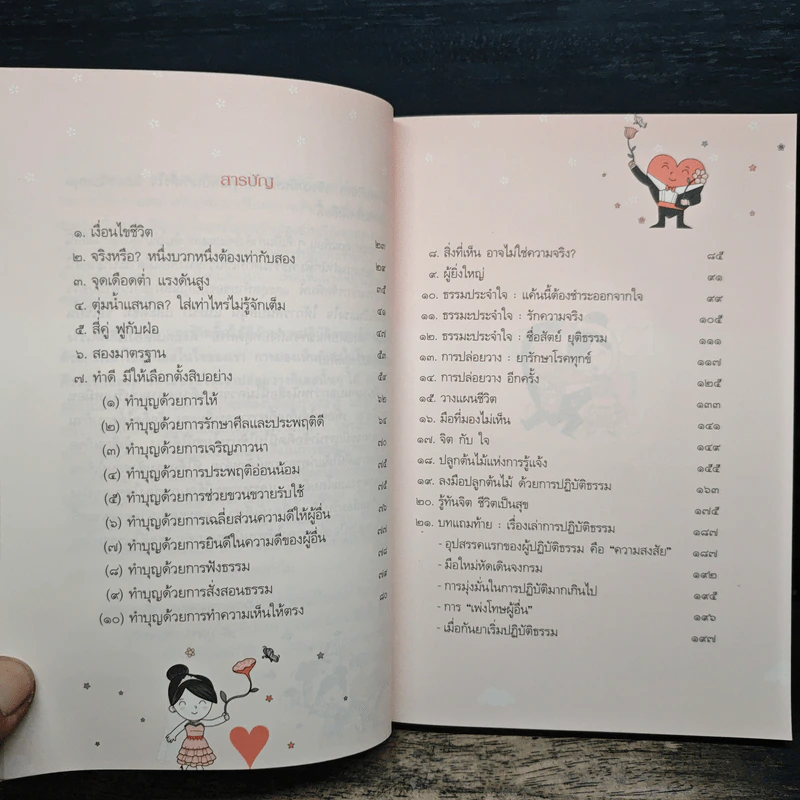 สารบัญ
๑. เงื่อนไขชีวิต ๒๓
๒. จริงหรือ? หนึ่งบวกหนึ่งต้องเท่ากับสอง ๒๙
๓. จุดเดือดต่ำ แรงดันสูง ๓๕
๔. ตุ่มน้ำแสนกล? ใส่เท่าไหร่ไม่รู้จักเต็ม ๔๑
๕. สี่คู่ ฟูกับฝ่อ ๔๗
๖. สองมาตรฐาน ๕๓
๗. ทำดี มีให้เลือกตั้งสิบอย่าง ๕๙
(๑) ทำบุญด้วยการให้ ๖๒
(๒) ทำบุญด้วยการรักษาศีลและประพฤติดี ๖๔
(๓) ทำบุญด้วยการเจริญภาวนา ๗๐
(๔) ทำบุญด้วยการประพฤติอ่อนน้อม ๗๕
(๕) ทำบุญด้วยการช่วยขวนขวายรับใช้ ๗๕
(๖) ทำบุญด้วยการเฉลี่ยส่วนความดีให้ผู้อื่น ๗๖
(๗) ทำบุญด้วยการยินดีในความดีของผู้อื่น ๗๗
(๘) ทำบุญด้วยการฟังธรรม ๗๘
(๙) ทำบุญด้วยการสั่งสอนธรรม ๗๙
(๑๐) ทำบุญด้วยการทำความเห็นให้ตรง ๘๐
๘. สิ่งที่เห็น อาจไม่ใช่ความจริง? ๘๕
๙. ผู้ยิ่งใหญ่ ๙๑
๑๐. ธรรมประจำใจ : แค้นนี้ต้องชำระออกจากใจ ๙๙
๑๑. ธรรมะประจำใจ : รักความจริง ๑๐๕
๑๒. ธรรมะประจำใจ : ซื่อสัตย์ ยุติธรรม ๑๑๑
๑๓. การปล่อยวาง : ยารักษาโรคทุกข์ ๑๑๗
๑๔. การปล่อยวาง อีกครั้ง ๑๒๕
๑๕. วางแผนชีวิต ๑๓๓
๑๖. มือที่มองไม่เห็น ๑๔๑
๑๗. จิต กับ ใจ ๑๔๙
๑๘. ปลูกต้นไม้แห่งการรู้แจ้ง ๑๕๕
๑๙. ลงมือปลูกต้นไม้ ด้วยการปฏิบัติธรรม ๑๖๓
๒๐. รู้ทันจิต ชีวิตเป็นสุข ๑๗๕
๒๑. บทแถมท้าย : เรื่องเล่าการปฏิบัติธรรม ๑๘๗
- อุปสรรคแรกของผู้ปฏิบัติธรรม คือ "ความสงสัย" ๑๘๗
- มือใหม่หัดเดินจงกรม ๑๙๒
- การมุ่งมั่นในการปฏิบัติมากเกินไป ๑๙๕
- การ "เพ่งโทษผู้อื่น" ๑๙๖
- เมื่อกันยาเริ่มปฏิบัติธรรม ๑๙๗